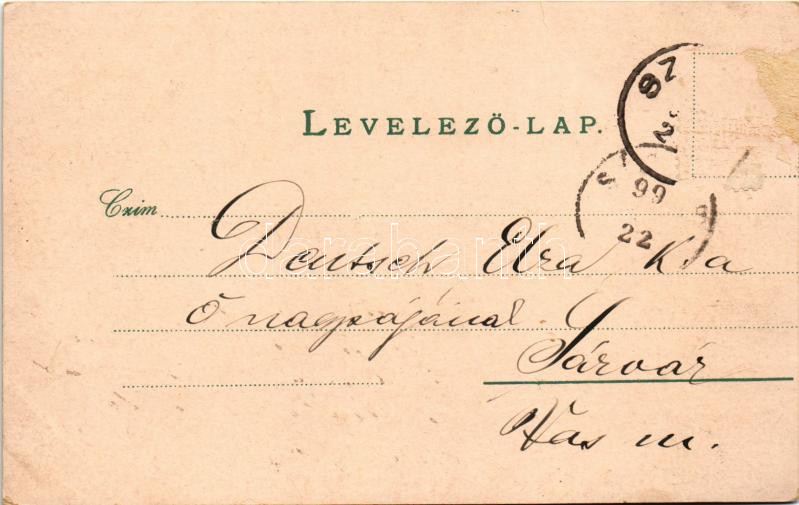 LEVELEZŐ-LAP.
SZ
Czim
Deutsch Elza k.a
ő nagyságának
Sárvár
Vas m.
99
22
darabanth